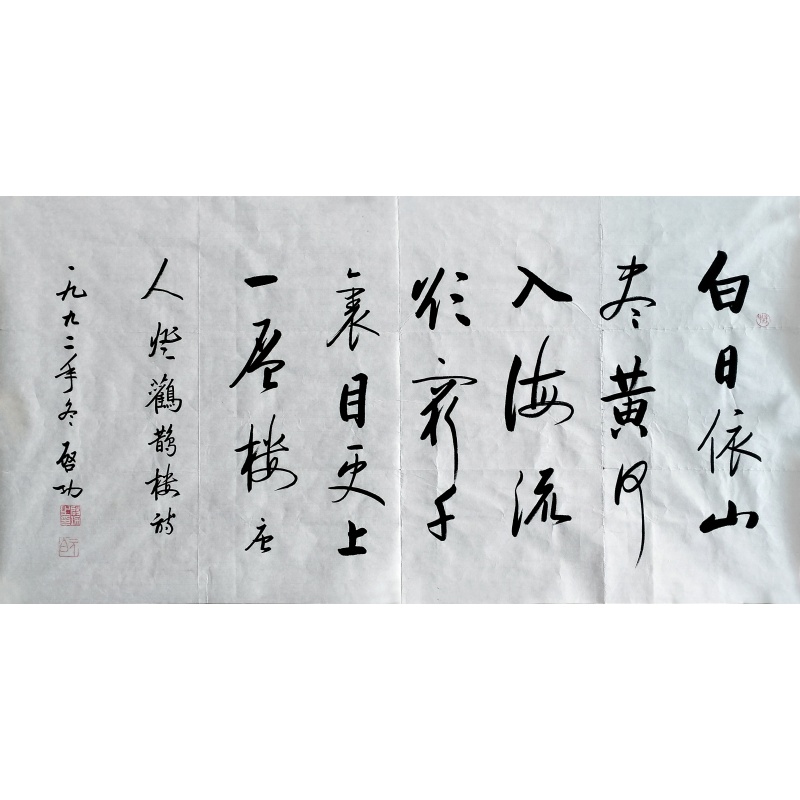 白日依山
尽黄河
入海流
欲窮千
裏目更上
一层楼 唐
人燈鸛鵲楼诗
一九九二年冬 啓功